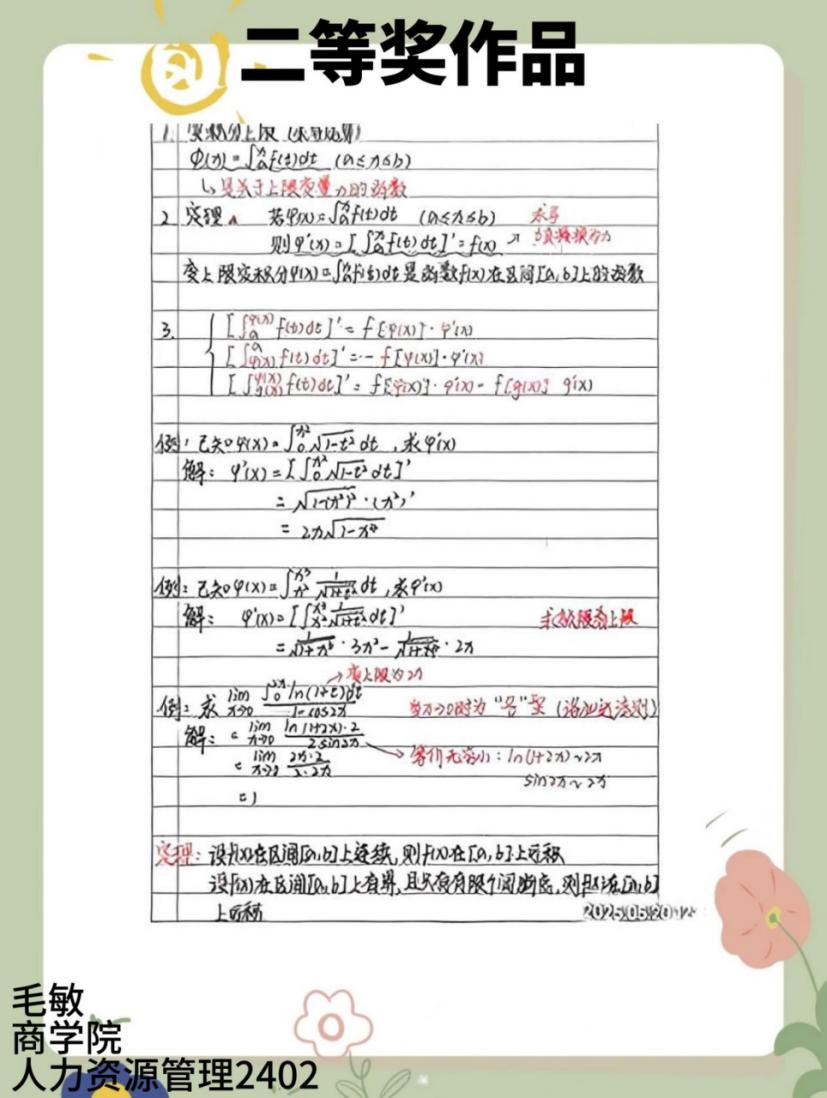 二等奖作品
1. 变积分上限 (求导运算)
Φ(x) = ∫ₐˣ f(t)dt (a≤x≤b)
↳ 是关于上限变量x的函数
2 定理 若φ(x)=∫ₐˣ f(t)dt (a≤x≤b) 求导
则φ'(x)=[∫ₐˣ f(t)dt]'=f(x) ↗
变上限定积分φ(x)=∫ₐˣ f(t)dt是函数f(x)在区间[a,b]上的函数
3. [∫ₐ^φ(x) f(t)dt]' = f[φ(x)]·φ'(x)
[∫_φ(x)^a f(t)dt]' = -f[φ(x)]·φ'(x)
[∫_g(x)^φ(x) f(t)dt]' = f[φ(x)]·φ'(x) - f[g(x)] g'(x)
例: 已知φ(x)=∫₀^x² √1-t² dt ,求φ'(x)
解: φ'(x)=[∫₀^x² √1-t² dt]'
= √1-(x²)² ·(x²)'
= 2x√1-x⁴
例: 已知φ(x)=∫_x²^x³ 1/√1+t² dt ,求φ'(x)
解: φ'(x)=[∫_x²^x³ 1/√1+t² dt]'
= 1/√1+x⁶ ·3x² - 1/√1+x⁴ ·2x
→变上限为2x
例: 求 lim x→0 ∫₀^2x ln(1+t)dt / 1-cos2x 当x→0时为"0/0"型 (洛必达法则)
解: = lim x→0 ln(1+2x)·2 / 2sin2x
= lim x→0 2x·2 / 2·2x → 等价无穷小: ln(1+2x)~2x
sin2x~2x
=1
定理: 设f(x)在区间[a,b]上连续,则f(x)在[a,b]上可积
设f(x)在区间[a,b]上有界,且只有有限个间断点,则f(x)在[a,b]
上可积
毛敏
商学院
人力资源管理2402